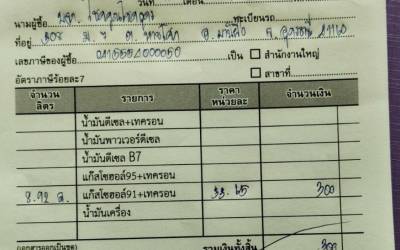 วันที่ เดือน
นามผู้ซื้อ ทะเบียนรถ
ที่อยู่ 308 ม. 7 ต. อ. จ. อุดรธานี 41110
เลขภาษีของผู้ซื้อ เป็น สำนักงานใหญ่
อัตราภาษีร้อยละ7 สาขาที่
จำนวน ลิตร รายการ ราคา หน่วยละ จำนวนเงิน
น้ำมันดีเซล+เทครอน
น้ำมันพาวเวอร์ดีเซล
น้ำมันดีเซล B7
แก๊สโซฮอล์95+เทครอน
8.92 ล. แก๊สโซฮอล์91+เทครอน 33.65 300
น้ำมันเครื่อง
(เอกสารออกเป็นชุด) รวมเงินทั้งสิ้น 300